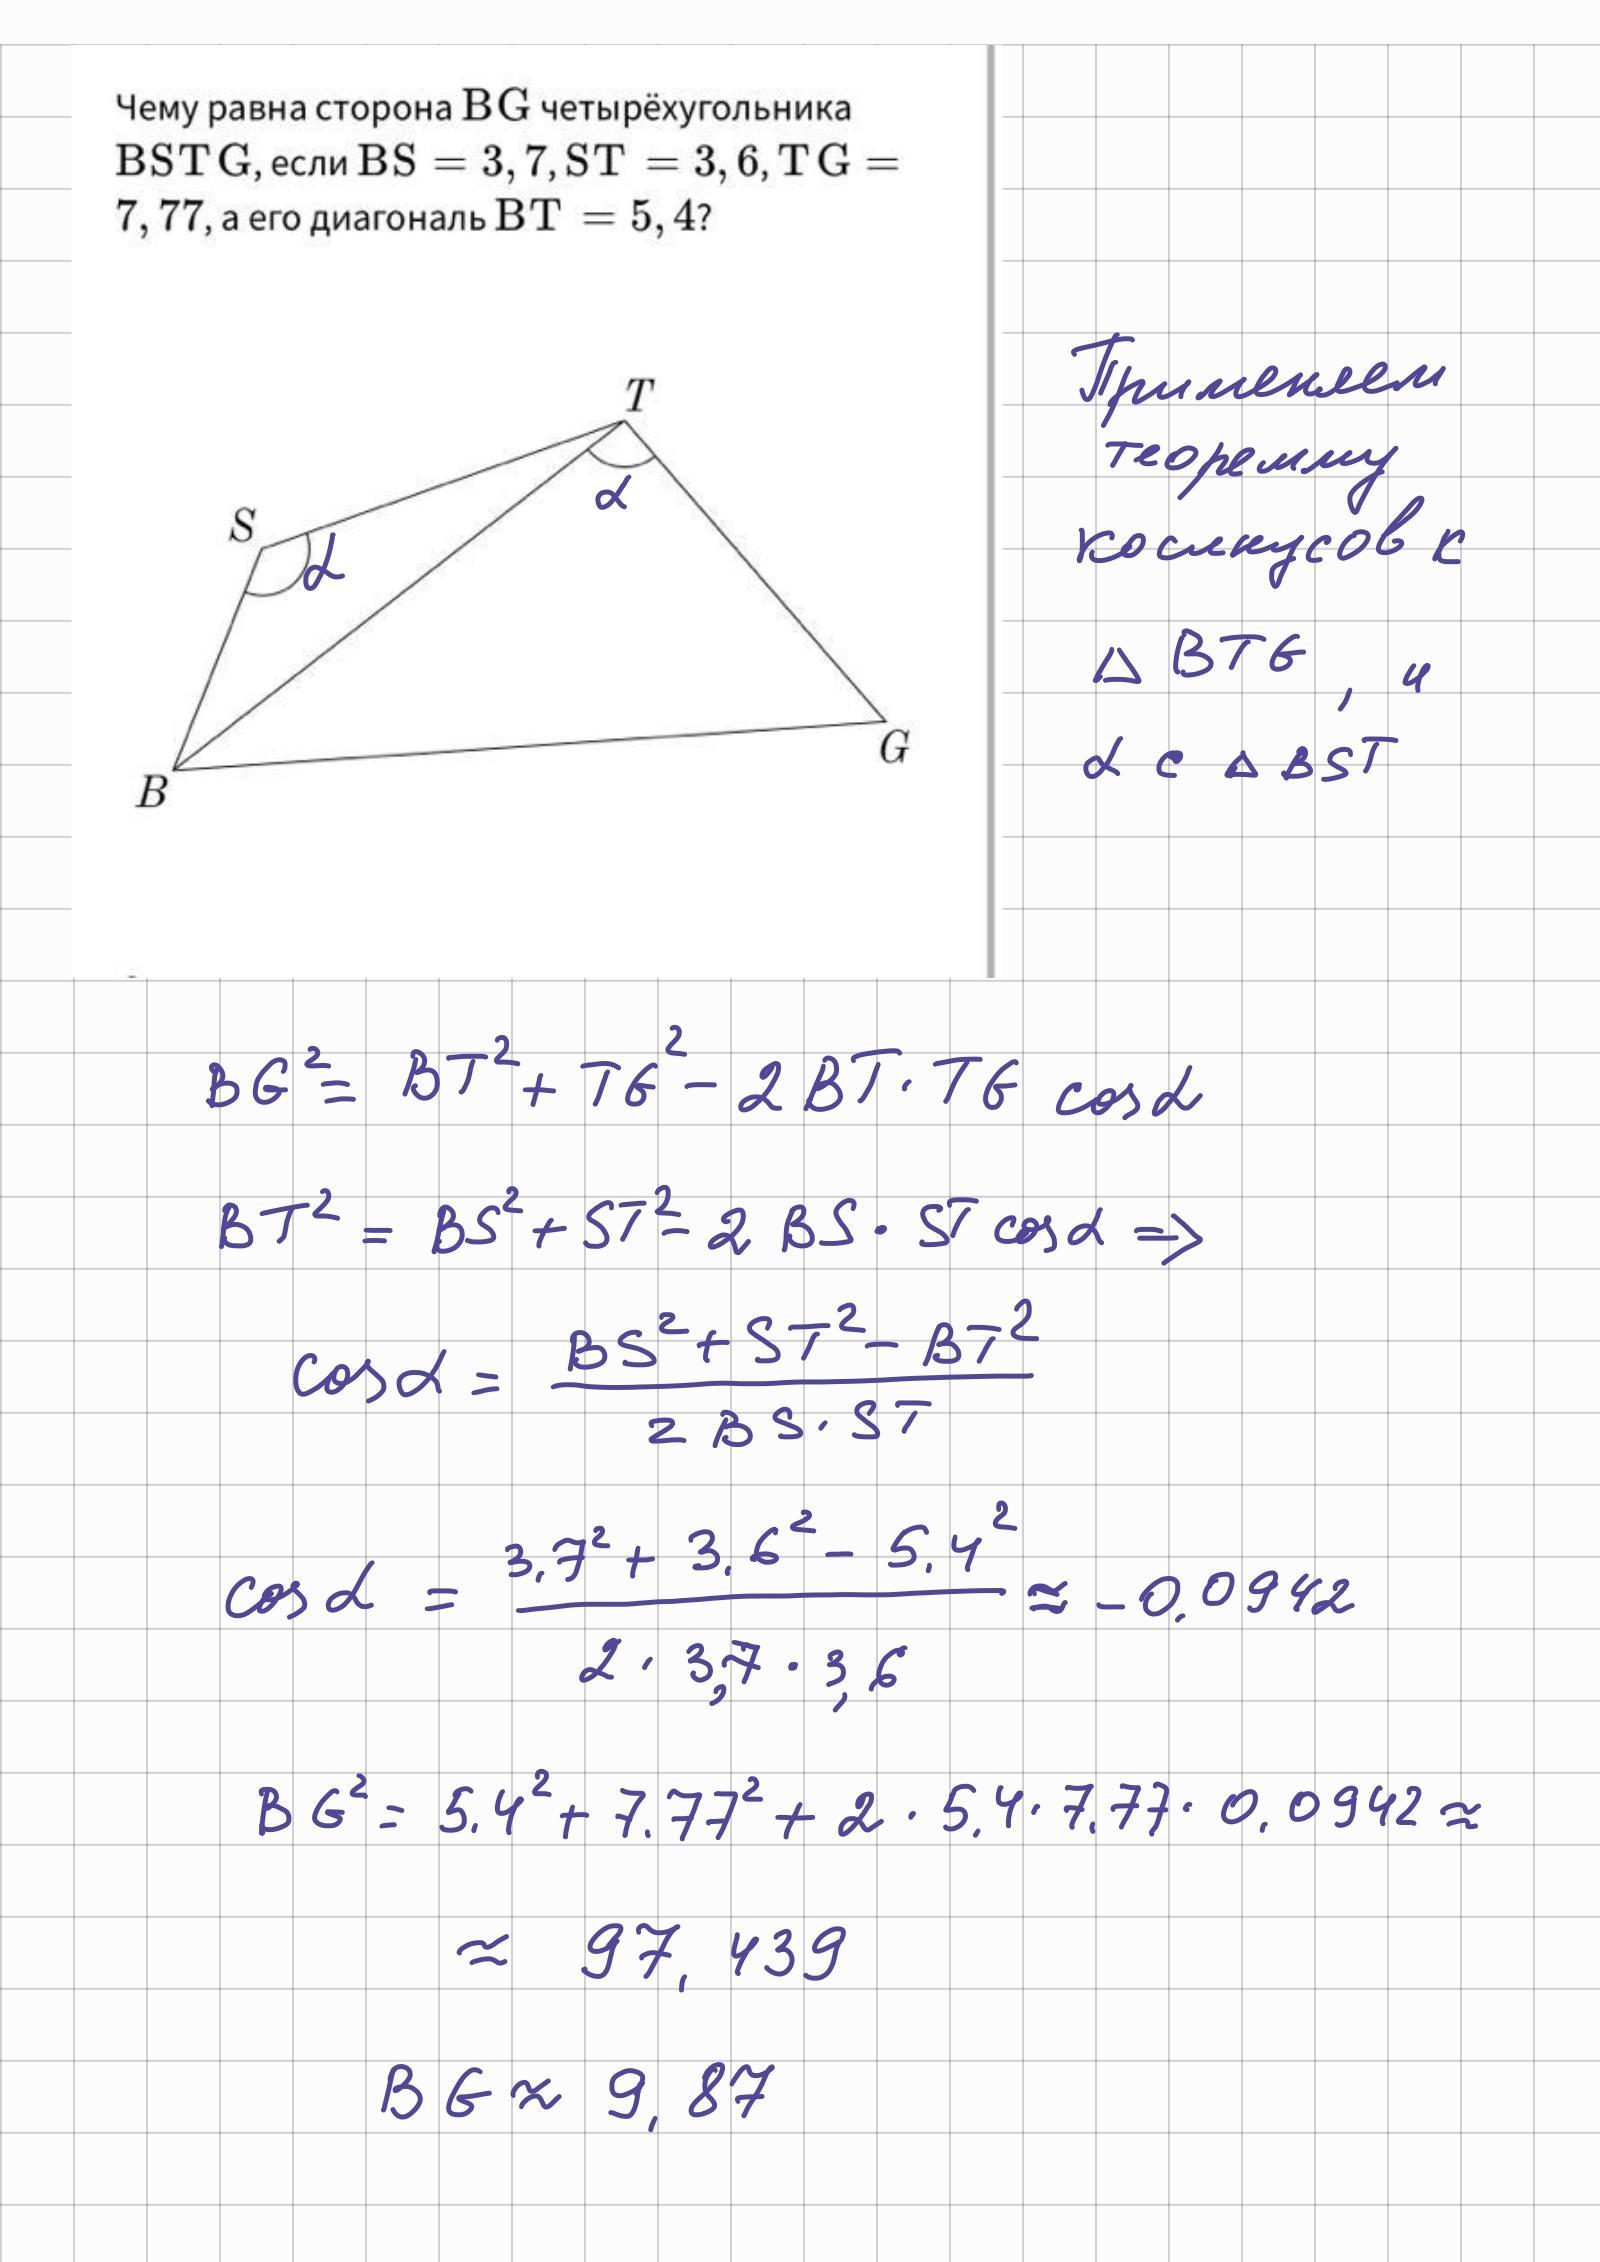 Чему равна сторона BG четырёхугольника
BSTG, если BS = 3,7, ST = 3,6, TG =
7,77, а его диагональ BT = 5,4?
T
α
S
α
G
B
Применяем
теоремму
косинусов к
△ BTG, и
α с △ BST
BG² = BT² + TG² - 2 BT · TG cos α
BT² = BS² + ST² - 2 BS · ST cos α ⇒
cos α = (BS² + ST² - BT²) / (2 BS · ST)
cos α = (3.7² + 3.6² - 5.4²) / (2 · 3,7 · 3,6) ≈ -0.0942
BG² = 5.4² + 7.77² + 2 · 5.4 · 7.77 · 0.0942 ≈
≈ 97,439
BG ≈ 9,87